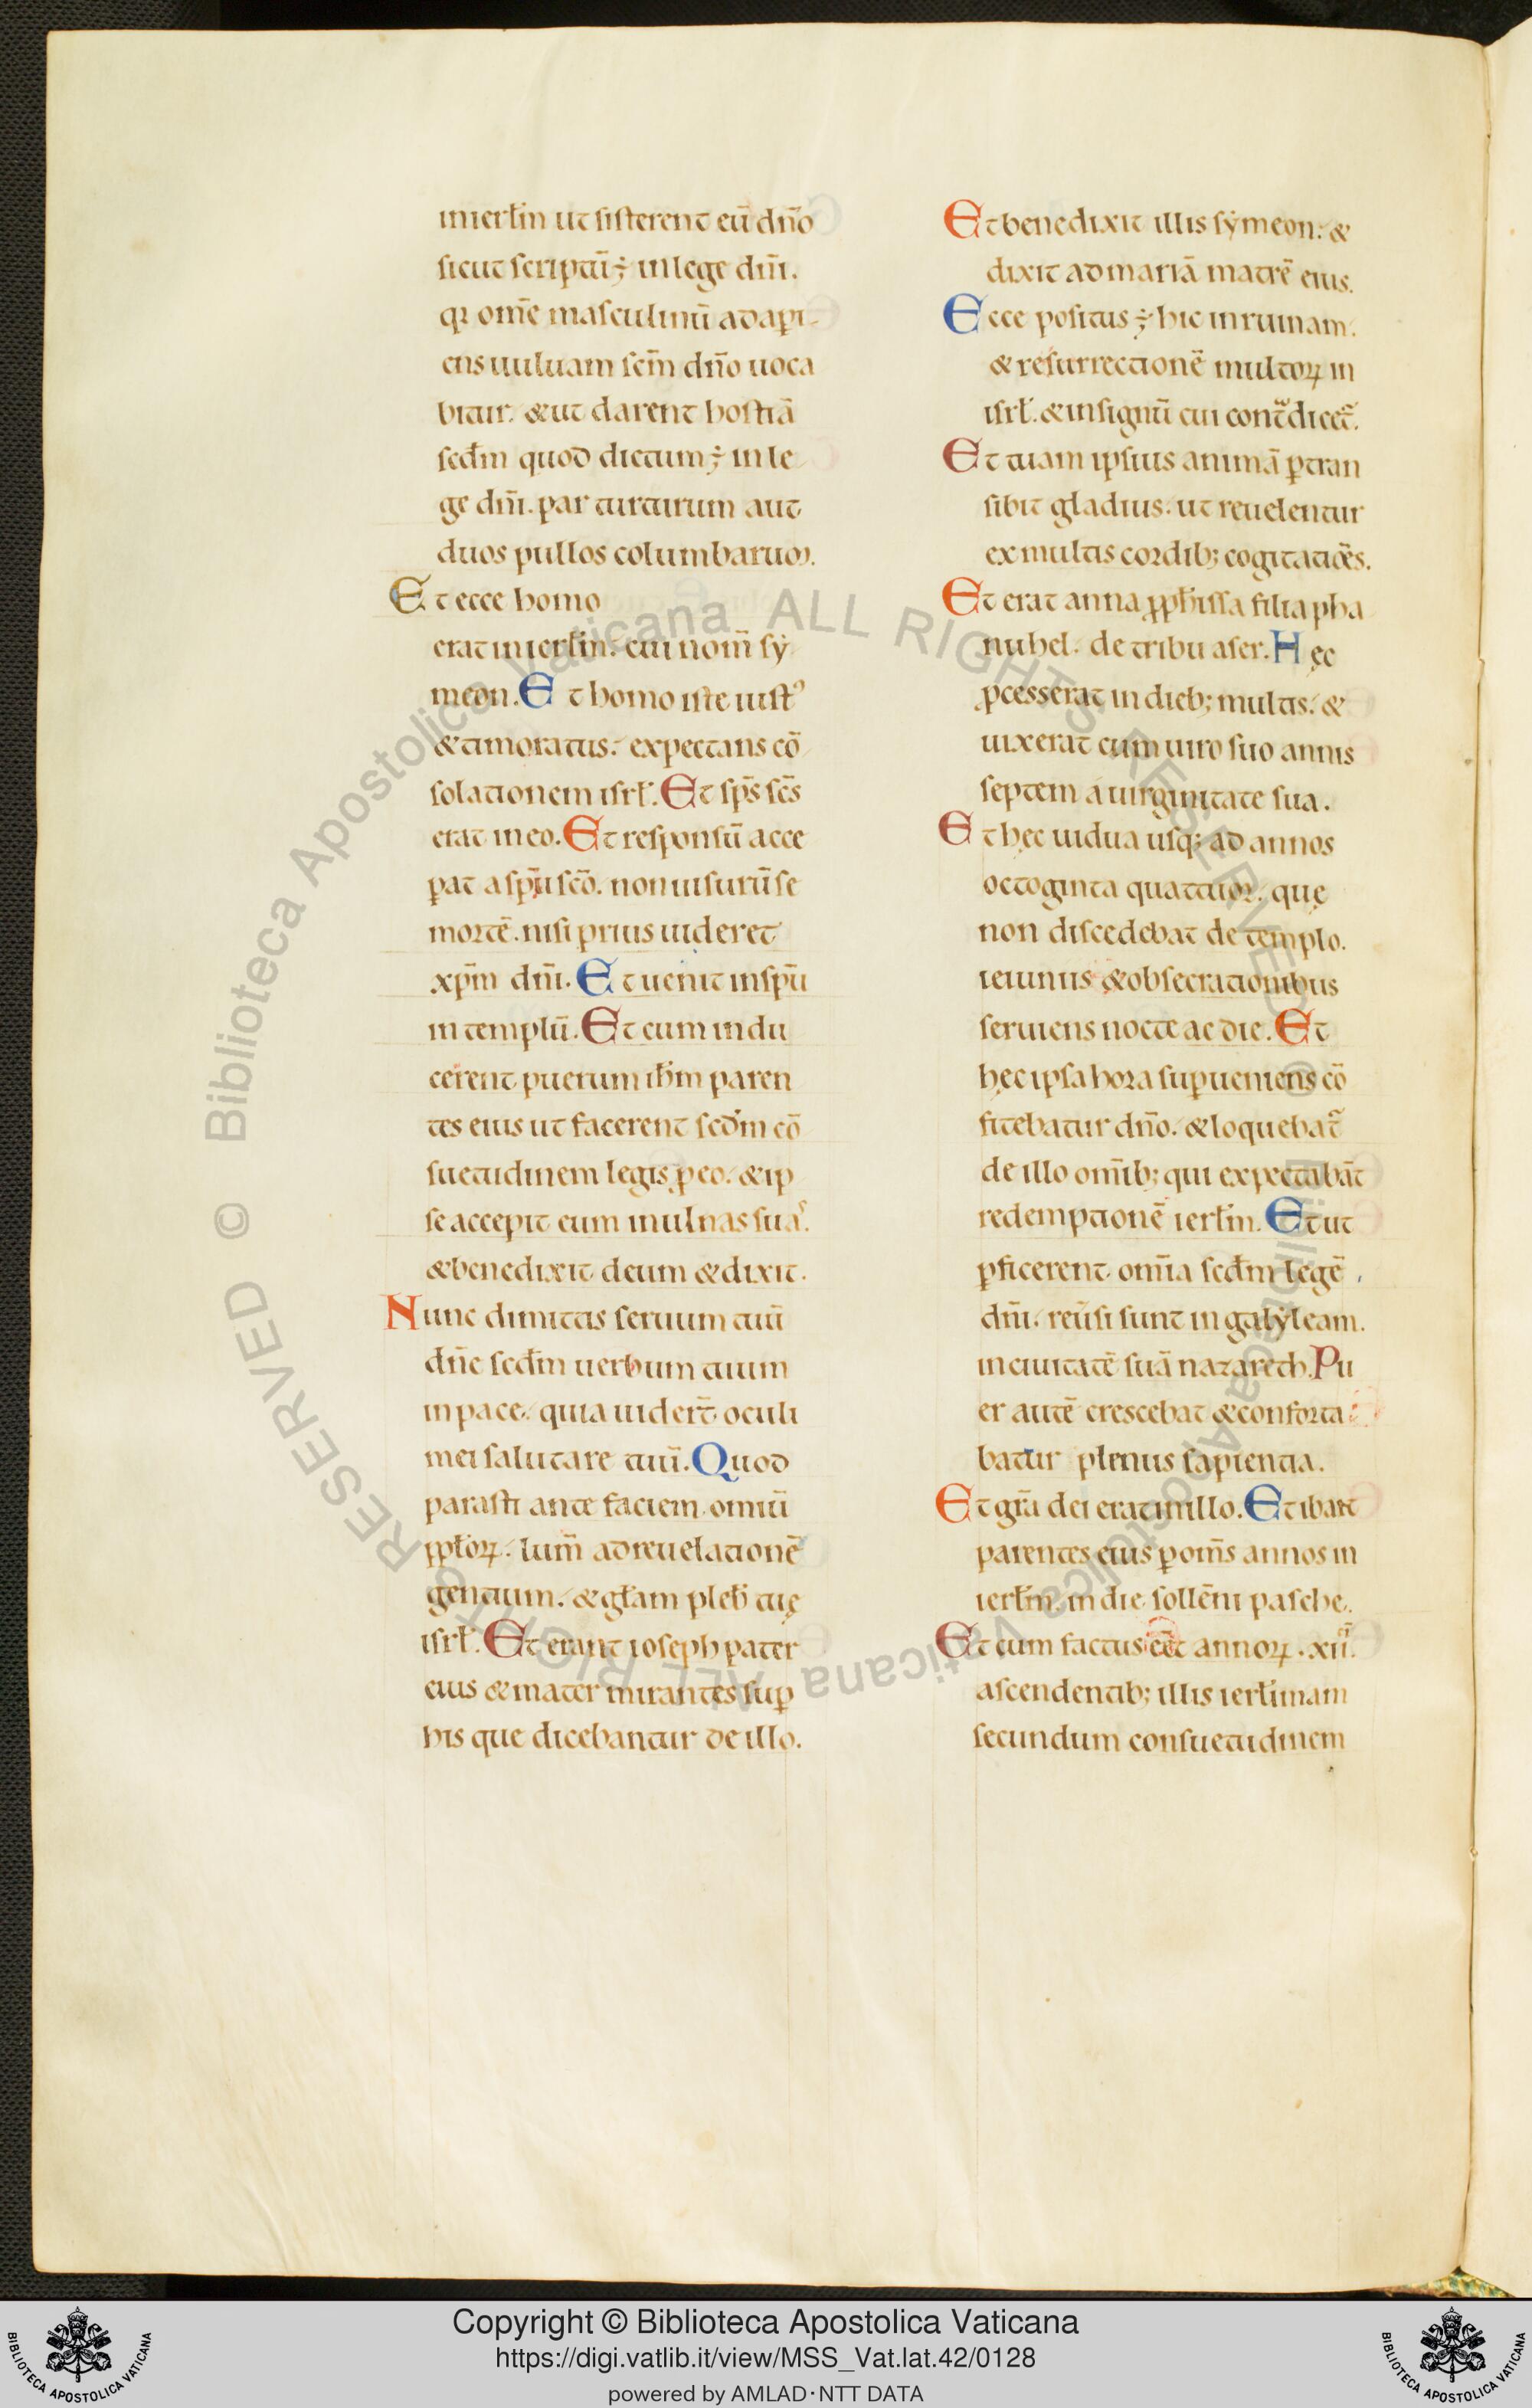 inierłm ut sisterent eū dn̄o
sicut scriptū ÷ in lege dn̄i.
qꝛ om̄e masculinū adapi-
ens uuluam scm̄ dn̄o uoca
bitur. & ut darent hostiā
scdm̄ quod dictum ÷ in le
ge dn̄i. par turturum aut
duos pullos columbaruꝫ.
Et ecce homo
erat in ierłm. cui nom̄ sẏ
meon. Et homo iste iustꝰ
& timoratus. expectans cō
solationem isrł. Et sp̄s sc̄s
erat in eo. Et responsū acce
ꝑat a spū scō. non uisurū se
mortē. nisi prius uideret
xp̄m dn̄i. Et uenit in spū
in templū. Et cum indu
cerent puerum ihm̄ paren
tes eius ut facerent scdm̄ cō
suetudinem legis ꝓ eo. & ip
se accepit eum in ulnas suas.
& benedixit deum & dixit.
Nunc dimittis seruum tuū
dn̄e scdm̄ uerbum tuum
in pace. quia uider̄t oculi
mei salutare tuū. Quod
parasti ante faciem omniū
ppłoꝝ. lum̄ ad reuelationē
gentium. & głam pleb̄ tuę
isrł. Et erant ioseph pater
eius & mater mirantes suꝑ
his que dicebantur de illo.
Et benedixit illis sẏmeon. &
dixit ad mariā matrē eius.
Ecce positus ÷ hic in ruinam.
& resurrectionē multoꝝ in
isrł. & in signū cui contᵃdicet᷑.
Et tuam ipsius animā ꝑtran
sibit gladius. ut reuelentur
ex multis cordib; cogitatiōes.
Et erat anna ꝓph̄issa filia pha
nuhel. de tribu aser. Hęc
ꝓcesserat in dieb; multis. &
uixerat cum uiro suo annis
septem a uirginitate sua.
Et hęc uidua usq; ad annos
octoginta quattuor. quę
non discedebat de templo.
ieiuniis & obsecrationibus
seruiens nocte ac die. Et
hęc ipsa hora suꝑueniens cō
fitebatur dn̄o. & loquebat᷑
de illo om̄ib; qui expectabāt
redemptionē ierłm. Et ut
ꝑficerent om̄ia scdm̄ legē
dn̄i. reūsi sunt in galẏleam.
in ciuitatē suā nazareth. Pu
er autē crescebat & conforta
batur plenus sapientia.
Et grā dei erat in illo. Et ibant
parentes eius ꝑ om̄s annos in
ierłm. in die sollēni pasche.
Et cum factus eēt annoꝝ .xii.
ascendentib; illis ierłimam
secundum consuetudinem
Copyright © Biblioteca Apostolica Vaticana
https://digi.vatlib.it/view/MSS_Vat.lat.42/0128
powered by AMLAD·NTT DATA
BIBLIOTECA APOSTOLICA VATICANA
BIBLIOTECA APOSTOLICA VATICANA
© Biblioteca Apostolica Vaticana ALL RIGHTS RESERVED © Biblioteca Apostolica Vaticana ALL RIGHTS RESERVED